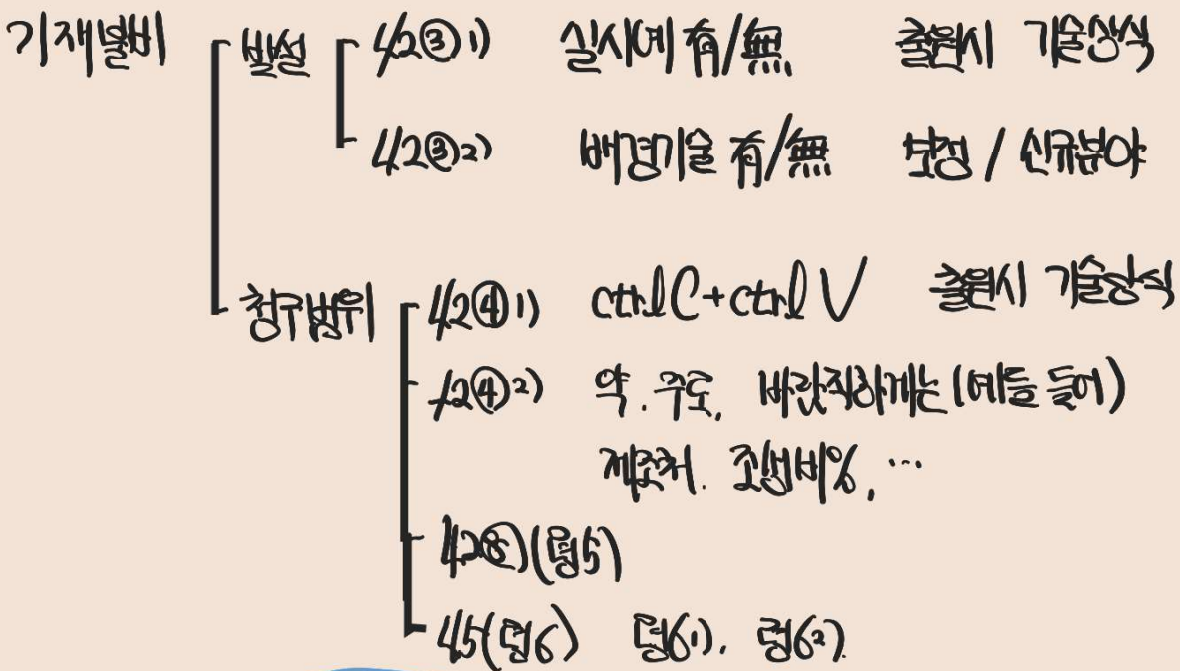 기재불비
발설 42③1) 실시예 有/無 출원시 기술상식
42③2) 배경기술 有/無 보정 / 신규분야
청구범위 42④1) ctrl C + ctrl V 출원시 기술상식
42④2) 약. 주로, 바람직하게는 (예를 들어)
제조처. 조성비%, …
42⑧ (령5)
45 (령6) 령6 1), 령6 2)